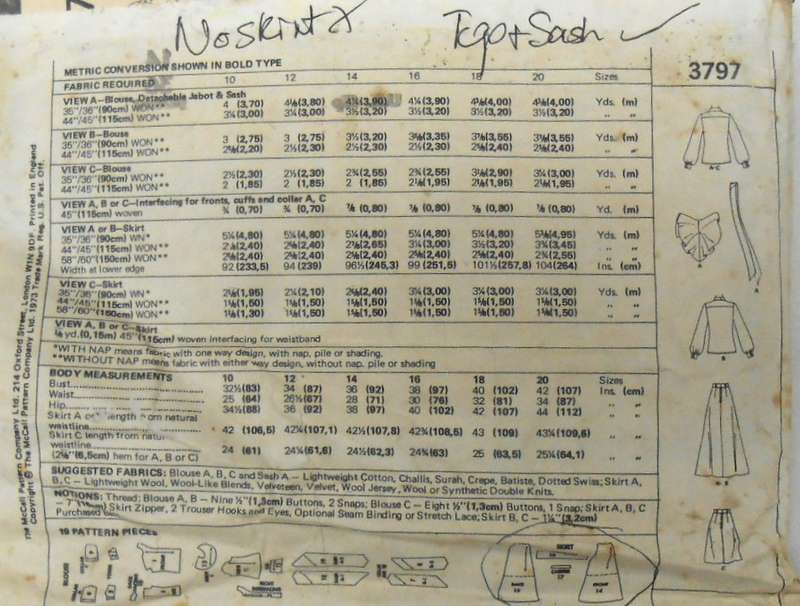 No skint x Top + Sash ✓
METRIC CONVERSION SHOWN IN BOLD TYPE
3797
FABRIC REQUIRED 10 12 14 16 18 20 Sizes
VIEW A–Blouse, Detachable Jabot & Sash
35"/36"(90cm) WON** 4 (3,70) 4⅛(3,80) 4¼(3,90) 4¼(3,90) 4⅜(4,00) 4⅜(4,00) Yds. (m)
44"/45"(115cm) WON** 3¼(3,00) 3¼(3,00) 3½(3,20) 3½(3,20) 3½(3,20) 3½(3,20) " "
VIEW B–Bouse
35"/36"(90cm) WON** 3 (2,75) 3 (2,75) 3½(3,20) 3⅝(3,35) 3⅞(3,55) 3⅞(3,55) Yds. (m)
44"/45"(115cm) WON** 2⅜(2,20) 2½(2,30) 2½(2,30) 2½(2,30) 2⅝(2,40) 2⅝(2,40) " "
VIEW C–Blouse
35"/36"(90cm) WON** 2½(2,30) 2½(2,30) 2¾(2,55) 2¾(2,55) 3⅛(2,90) 3¼(3,00) Yds. (m)
44"/45"(115cm) WON** 2 (1,85) 2 (1,85) 2 (1,85) 2⅛(1,95) 2⅛(1,95) 2⅛(1,95) " "
VIEW A, B or C–Interfacing for fronts, cuffs and collar A, C
45"(115cm) woven ¾ (0,70) ¾ (0,70) ⅞ (0,80) ⅞ (0,80) ⅞ (0,80) ⅞ (0,80) Yd. (m)
VIEW A or B–Skirt
35"/36"(90cm) WN* 5¼(4,80) 5¼(4,80) 5¼(4,80) 5¼(4,80) 5¼(4,80) 5⅜(4,95) Yds. (m)
44"/45"(115cm) WON** 2⅝(2,40) 2⅝(2,40) 2⅞(2,65) 3¼(3,00) 3½(3,20) 3¾(3,45) " "
58"/60"(150cm) WON** 2⅝(2,40) 2⅝(2,40) 2⅝(2,40) 2⅝(2,40) 2⅝(2,40) 2¾(2,55) " "
Width at lower edge 92 (233,5) 94 (239) 96½(245,3) 99 (251,5) 101½(257,8) 104(264) Ins. (cm)
VIEW C–Skirt
35"/36"(90cm) WN* 2⅛(1,95) 2¼(2,10) 2⅝(2,40) 3¼(3,00) 3¼(3,00) 3¼(3,00) Yds. (m)
44"/45"(115cm) WON** 1⅝(1,50) 1⅝(1,50) 1⅝(1,50) 1⅝(1,50) 1⅝(1,50) 1⅝(1,50) " "
58"/60"(150cm) WON** 1⅜(1,30) 1⅝(1,50) 1⅝(1,50) 1⅝(1,50) 1⅝(1,50) 1⅝(1,50) " "
VIEW A, B or C–Skirt
⅛ yd.(0,15m) 45"(115cm) woven interfacing for waistband
*WITH NAP means fabric with one way design, with nap, pile or shading.
**WITHOUT NAP means fabric with either way design, without nap, pile or shading
BODY MEASUREMENTS 10 12 14 16 18 20 Sizes
Bust 32½(83) 34 (87) 36 (92) 38 (97) 40 (102) 42 (107) Ins. (cm)
Waist 25 (64) 26½(67) 28 (71) 30 (76) 32 (81) 34 (87) " "
Hip 34½(88) 36 (92) 38 (97) 40 (102) 42 (107) 44 (112) " "
Skirt A or length from natural
waistline 42 (106,5) 42¼(107,1) 42½(107,8) 42¾(108,5) 43 (109) 43¼(109,6) " "
Skirt C length from natur
waistline 24 (61) 24¼(61,6) 24½(62,3) 24¾(63) 25 (63,5) 25¼(64,1) " "
(2⅝"(6,5cm) hem for A, B or C)
SUGGESTED FABRICS: Blouse A, B, C and Sash A – Lightweight Cotton, Challis, Surah, Crepe, Batiste, Dotted Swiss; Skirt A,
B, C – Lightweight Wool, Wool-Like Blends, Velveteen, Velvet, Wool Jersey, Wool or Synthetic Double Knits.
NOTIONS: Thread; Blouse A, B – Nine ½"(1,3cm) Buttons, 2 Snaps; Blouse C – Eight ½"(1,3cm) Buttons, 1 Snap; Skirt A, B, C
– 7" Skirt Zipper, 2 Trouser Hooks and Eyes, Optional Seam Binding or Stretch Lace; Skirt B, C – 1¼"(3,2cm)
Purchased
19 PATTERN PIECES
BLOUSE
SKIRT
A-C
A
A
B
C
The McCall Pattern Company Ltd. 214 Oxford Street, London W1N 9DF. Printed in England
Copyright © The McCall Pattern Company Ltd. 1973 Trade Mark Reg. U.S. Pat. Off.